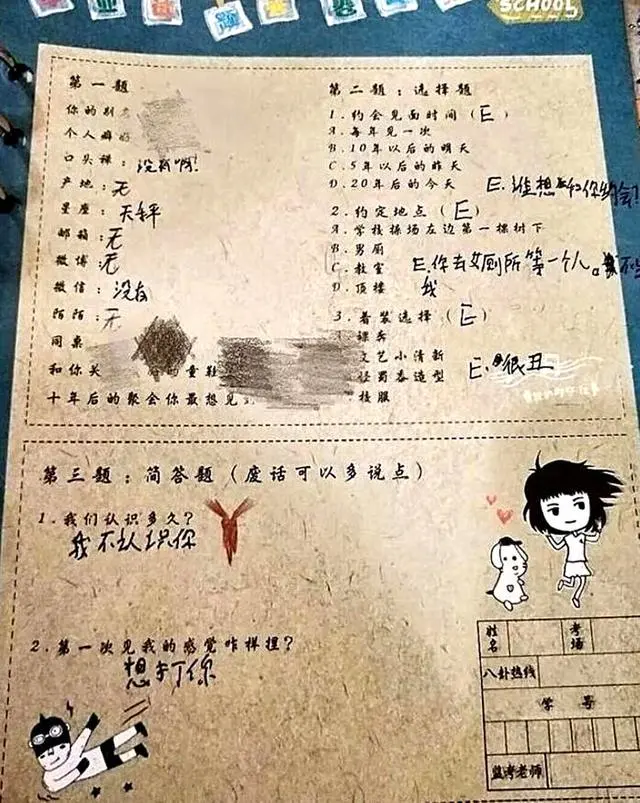 SCHOOL
第一题
你的别
个人癖好
口头禅：没有啊！
产地：无
星座：天秤
邮箱：无
微博：无
微信：没有
陌陌：无
同桌
和你关 的童鞋
十年后的聚会你最想见到
第二题：选择题
1.约会见面时间（E）
A.每年见一次
B.10年以后的明天
C.5年以后的昨天
D.20年后的今天 E.谁想和你约会？
2.约定地点（E）
A.学校操场左边第一棵树下
B.男厕
C.教室 E.你去女厕所等一个人。
D.顶楼 我
3.着装选择（E）
课本
文艺小清新
怪蜀黍造型 E.很丑
校服
第三题：简答题（废话可以多说点）
1.我们认识多久？
我不认识你
2.第一次见我的感觉咋样捏？
想打你
姓名 考场
八卦热线
学号
监考老师